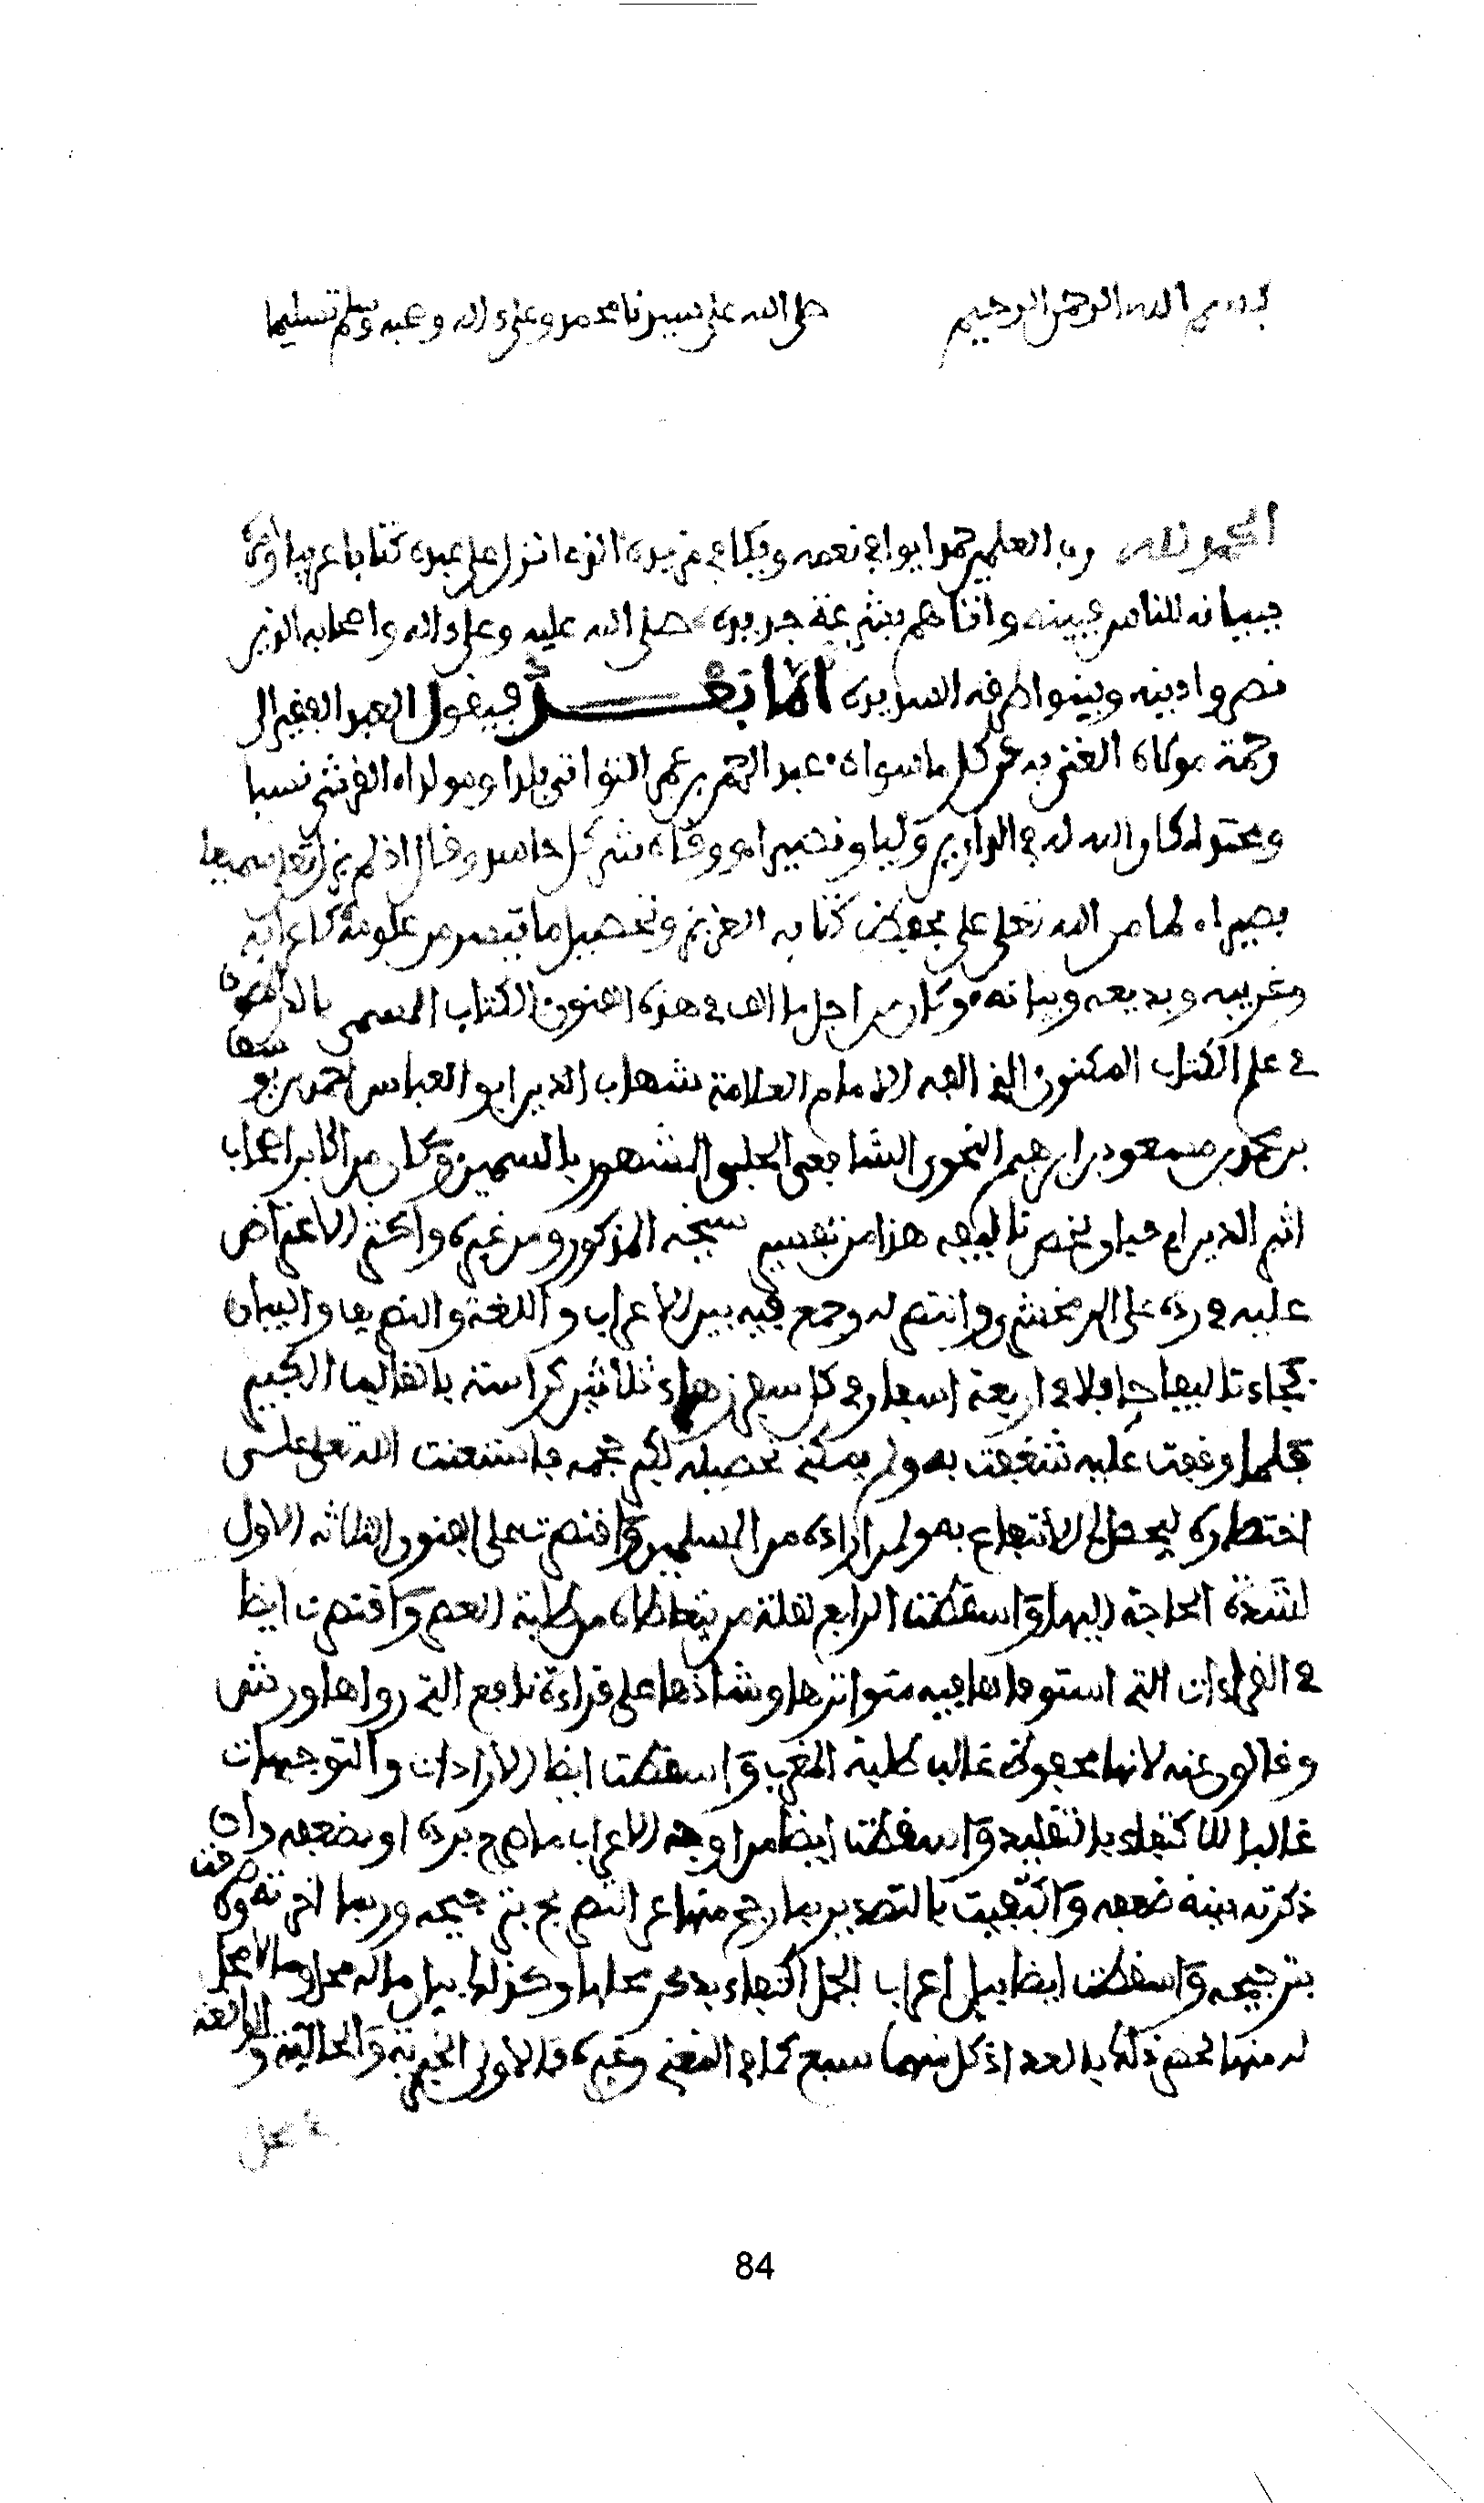 بسم الله الرحمن الرحيم صلى الله على سيدنا محمد وعلى ءاله وصحبه وسلم تسليما
الحمد لله رب العلمين حمدا يوافي نعمه ويكافي مزيده الذي انزل على عبده كتابا عربيا وامره
ببيانه للناس فبينه واتاهم بشرعة جديدة صلى الله عليه وعلى ءاله واصحابه الذين
نصروا دينه وبينوا طرقه السديدة اما بعد فيقول العبد الفقير الى
رحمة مولاه الغني به عن كل ما سواه عبد الرحمن بن عمر التواتي بلدا ومولدا القرشي نسبا
ومحتدا كان الله له في الدارين وليا ونصيرا ووقاه شر كل حاسد وقال اذ لم يزل تعلى سميعا
بصيرا لما من الله تعلى علي بحفظ كتابه العزيز وتحصيل ما تيسر من علومه كاعرابه
وغريبه وبديعه وبيانه وكان من اجل ما الف في هذه الفنون الكتاب المسمى بالدر المصون
في علم الكتاب المكنون الذي الفه الامام العلامة شهاب الدين ابو العباس احمد بن يوسف
بن محمد بن مسعود بن ابرهيم النحوي الشافعي الحلبي المشهور بالسمين وكان من اكابر اصحاب
اثير الدين ابي حيان لخص تاليفه هذا من تفسير شيخه المذكور ومن غيره واكثر الاعتراض
عليه في رده على الزمخشري وانتصر له وجمع فيه بين الاعراب واللغة والتصريف والبيان
فجاء تاليفا حافلا في اربعة اسفار في كل سفر زهاء ثلاثين كراسة بالقاليب الكبير
فلما وقفت عليه شغفت به ولم يمكني تحصيله لكبر حجمه فاستعنت الله تعلى على
اختصاره ليحصل لي الانتفاع به ولمن اراده من المسلمين واقتصرت على الفنون الثلاثة الاول
لشدة الحاجة اليها واسقطت الرابع لقلة من يتعاطاه من طلبة العصر واقتصرت ايضا
في القراءات التي استوفاها فيه متواترها وشاذها على قراءة نافع التي رواها ورش
وقالون عنه لانها محفوظة غالبا لطلبة المغرب واسقطت ايضا الارادات والتوجيهات
غالبا للاكتفاء بالتقليد واسقطت ايضا من اوجه الاعراب ما صرح برده او بضعفه وان
ذكرته بينت ضعفه واكتفيت بالتصدير بما رجح منها عن التصريح بترجيحه وربما اخرته وصرحت
بترجيحه واسقطت ايضا بيان اعراب الجمل اكتفاء بذكر محلها وكذلك بيان ما له محل وما لا محل
له منها لحصر ذلك بالعدد اذ كل منهما سبع كما في المغني وغيره فالاولى الخبرية والحالية والواقعة
84